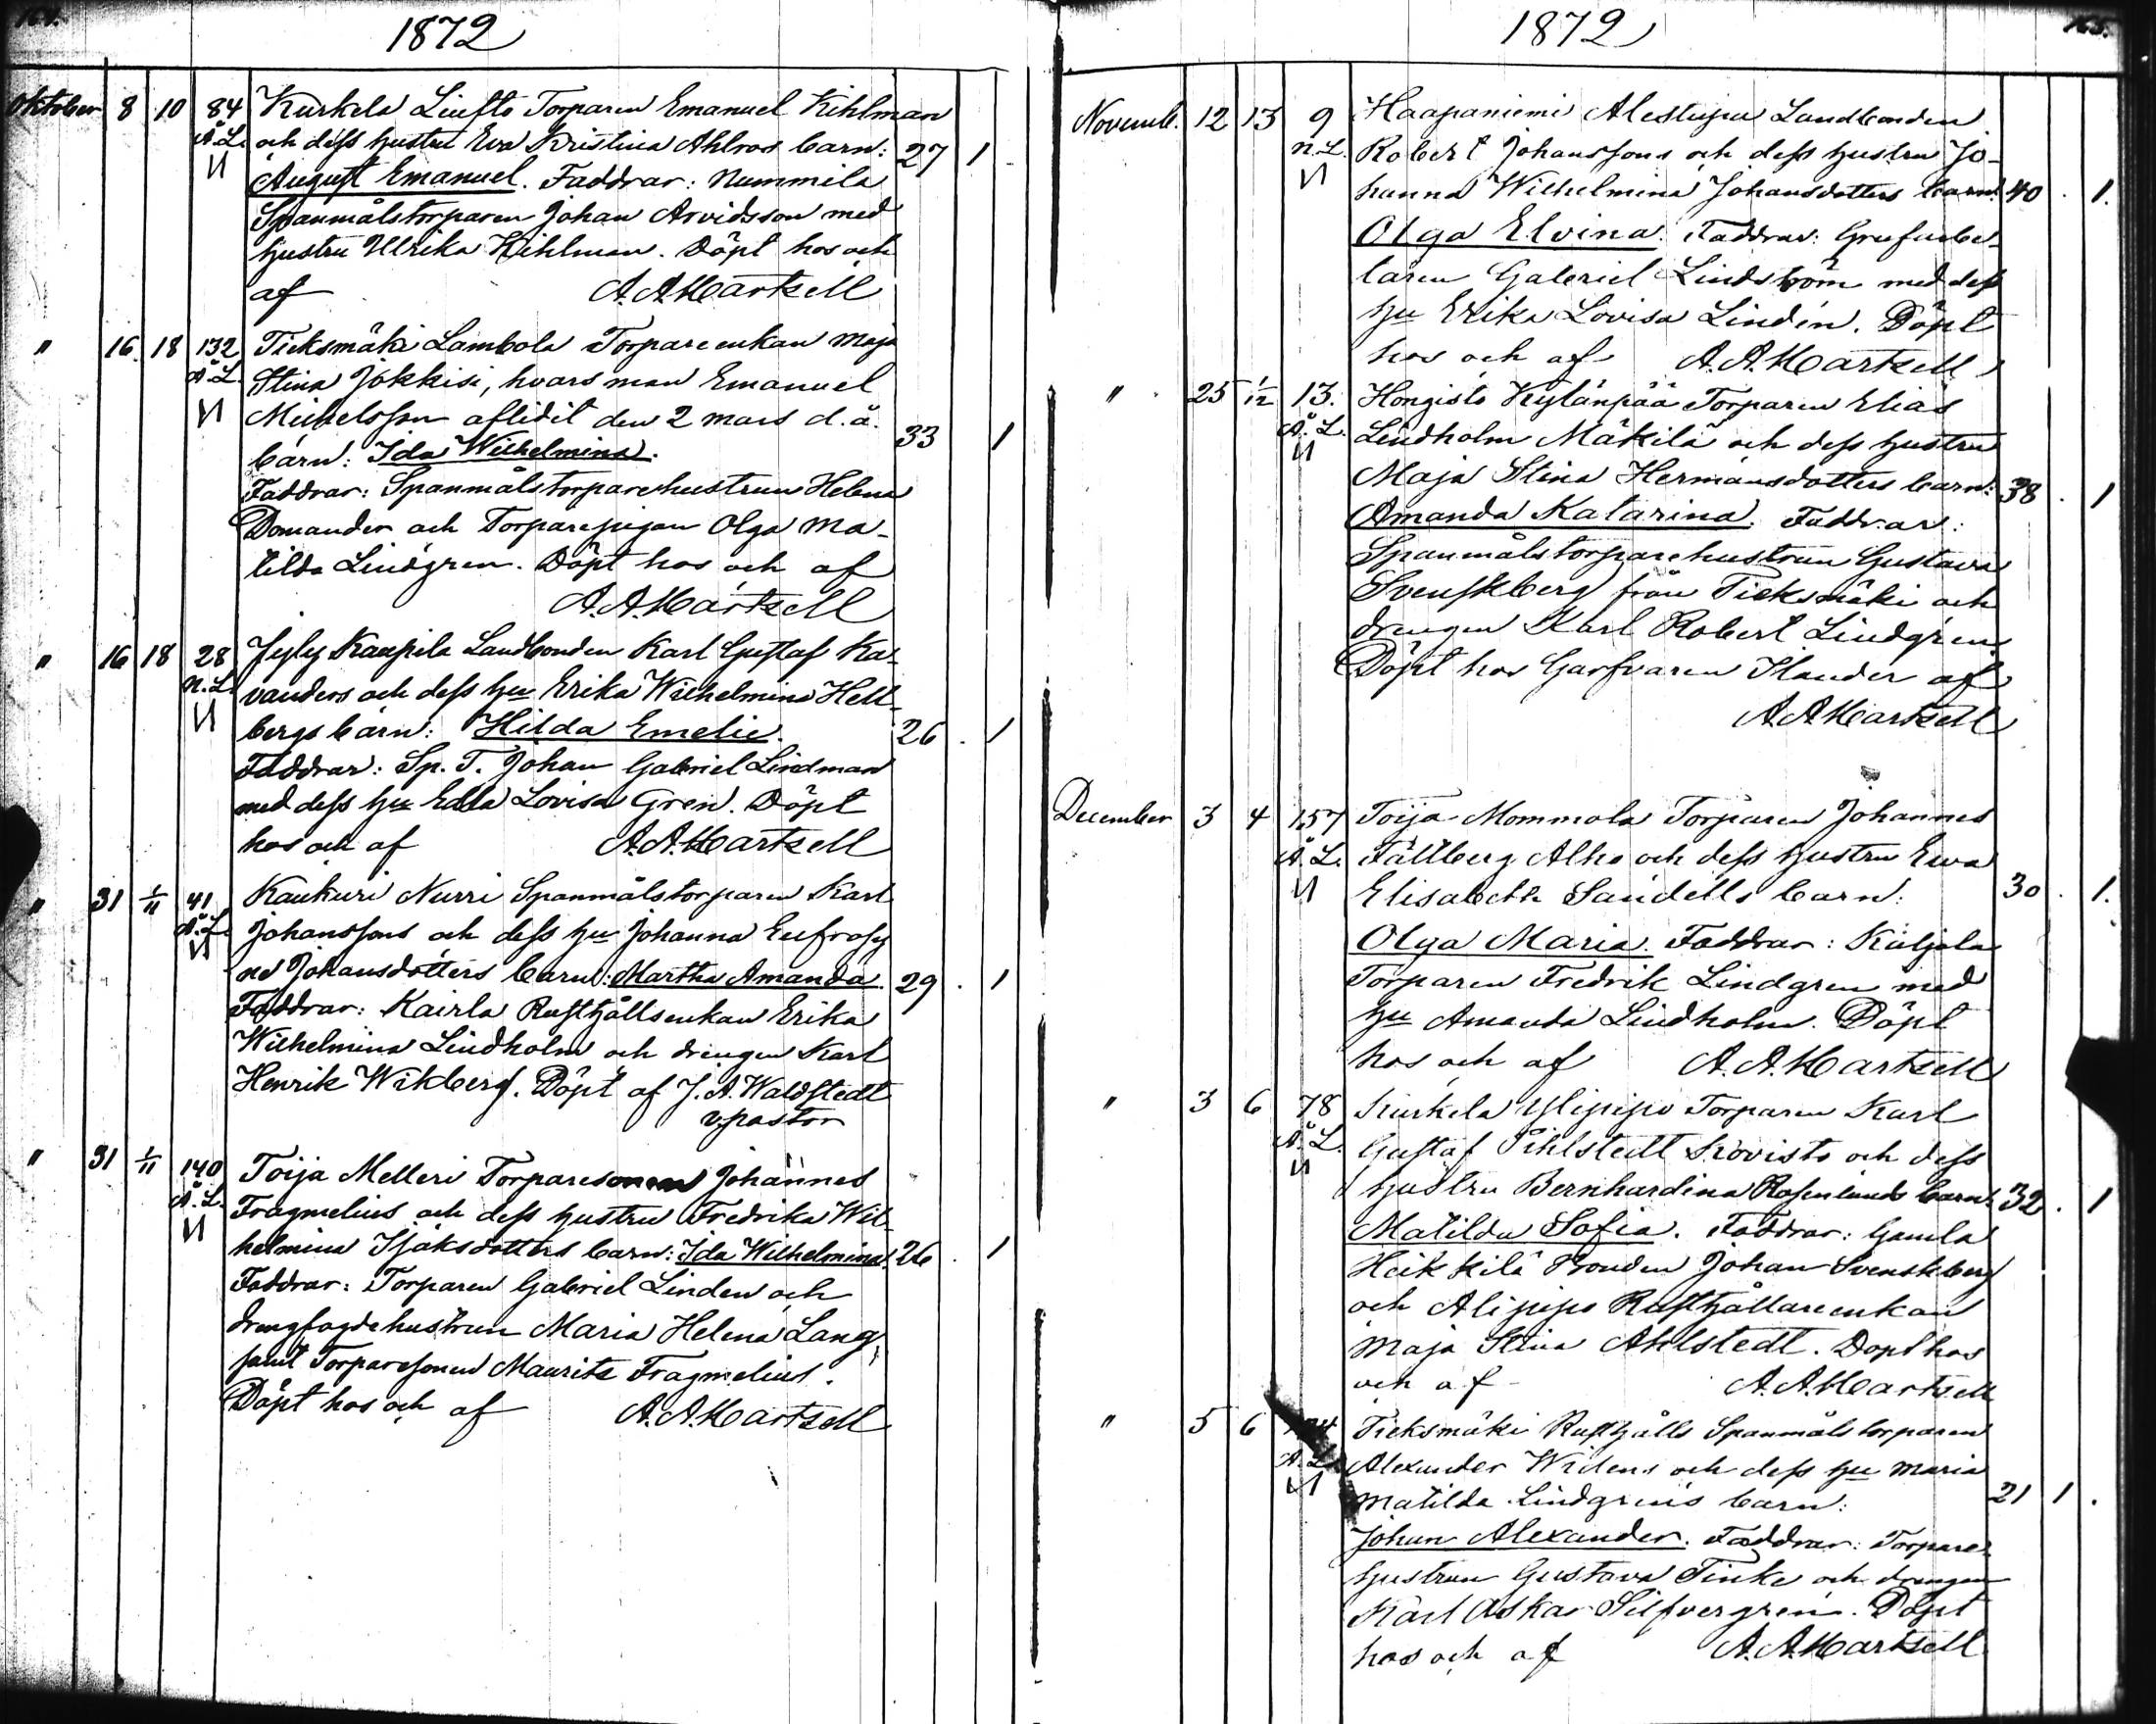 164.
1872
Oktober 8 10 84 Kurkela Liufto Torparen Emanuel Kihlman
Å.L. och dess hustru Eva Kristina Ahlros barn: 27 1
August Emanuel. Faddrar: Nummila
Spanmålstorparen Johan Arvidsson med
hustru Ulrika Kihlman. Döpt hos och
af A. A. Hartzell
" 16 18 132 Ticksmäki Lambola Torpareenkan Maja
Å.L. Stina Jokkisi, hvars man Emanuel
Michelsson aflidit den 2 mars d. å. 33 1
barn: Ida Wilhelmina.
Faddrar: Spanmålstorparehustrun Helena
Domander och Torparepigan Olga Ma-
tilda Lindgren. Döpt hos och af
A. A. Hartzell
" 16 18 28 Jyly Kaupila Landbonden Karl Gustaf Ka-
N.L. vanders och dess hu Erika Wilhelmina Hell-
bergs barn: Hilda Emelie. 26 . 1
Faddrar: Sp. T. Johan Gabriel Lindman
med dess hu Edla Lovisa Gren. Döpt
hos och af A. A. Hartzell
" 31 1/11 41 Kaukuri Nurri Spanmålstorparen Karl
Å.L. Johanssons och dess hu Johanna Eufrosy
ne Johansdotters barn: Martha Amanda. 29 . 1
Faddrar: Kairla Rusthållsenkan Erika
Wilhelmina Lindholm och drengen Karl
Henrik Wikberg. Döpt af J. A. Waldstedt
v. pastor
" 31 1/11 140 Toija Melleri Torparesonen Johannes
Å.L. Fragmelius och dess hustru Fredrika Wil-
helmina Isaksdotters barn: Ida Wilhelmina. 26 . 1
Faddrar: Torparen Gabriel Linden och
drengfogdehustrun Maria Helena Lang,
samt Torparesonen Maurits Fragmelius.
Döpt hos och af A. A. Hartzell
165.
1872
Novemb. 12 13 9 Haapaniemi Alestupa Landbonden
N.L. Robert Johanssons och dess hustru Jo-
hanna Wilhelmina Johansdotters barn: 40 . 1.
Olga Elvina. Faddrar: Grufarbe-
taren Gabriel Lindström med dess
hu Erika Lovisa Lindén. Döpt
hos och af A. A. Hartzell
" 25 1/12 13. Hongisto Kylänpää Torparen Elias
Å.L. Lindholm Mäkilä och dess hustru
Maja Stina Hermansdotters barn: 38 . 1
Amanda Katarina. Faddrar:
Spanmålstorparehustrun Gustava
Svenskberg från Ticksmäki och
drengen Karl Robert Lindgren.
Döpt hos Garfvaren Ilander af
A. A. Hartzell
December 3 4 157 Toija Mommola Torparen Johannes
Å.L. Fällberg Alho och dess hustru Ewa
Elisabeth Sandells barn: 30 . 1.
Olga Maria. Faddrar: Kuljola
Torparen Fredrik Lindgren med
hu Amanda Lindholm. Döpt
hos och af A. A. Hartzell
" 3 6 78 Kurkela Ylipipo Torparen Karl
Å.L. Gustaf Pihlstedt Kovisto och dess
hustru Bernhardina Rosenlunds barn: 32 . 1
Matilda Sofia. Faddrar: Gamla
Heikkilä Bonden Johan Svenskberg
och Alipipo Rusthållareenkan
Maja Stina Ahlstedt. Döpt hos
och af A. A. Hartzell
" 5 6 Ticksmäki Rusthålls Spanmålstorparen
Å.L. Alexander Widens och dess hu Maria
Matilda Lindgrens barn: 21 1 .
Johan Alexander. Faddrar: Torpare-
hustrun Gustava Tinke och drengen
Karl Oskar Silfvergren. Döpt
hos och af A. A. Hartzell